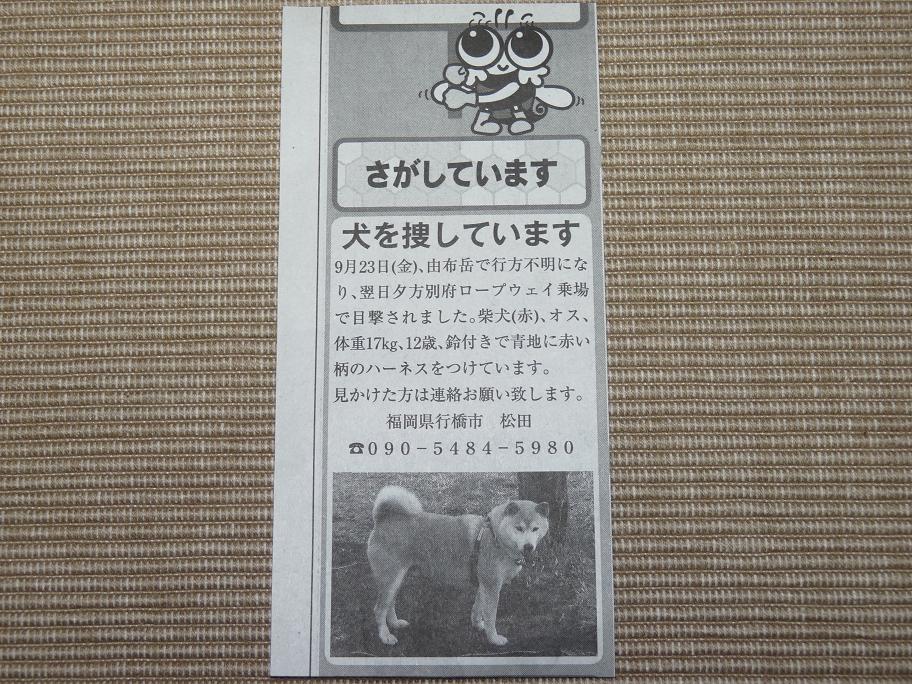 さがしています
犬を捜しています
9月23日(金)、由布岳で行方不明にな
り、翌日夕方別府ロープウェイ乗場
で目撃されました。柴犬(赤)、オス、
体重17kg、12歳、鈴付きで青地に赤い
柄のハーネスをつけています。
見かけた方は連絡お願い致します。
福岡県行橋市　松田
☎090−5484−5980